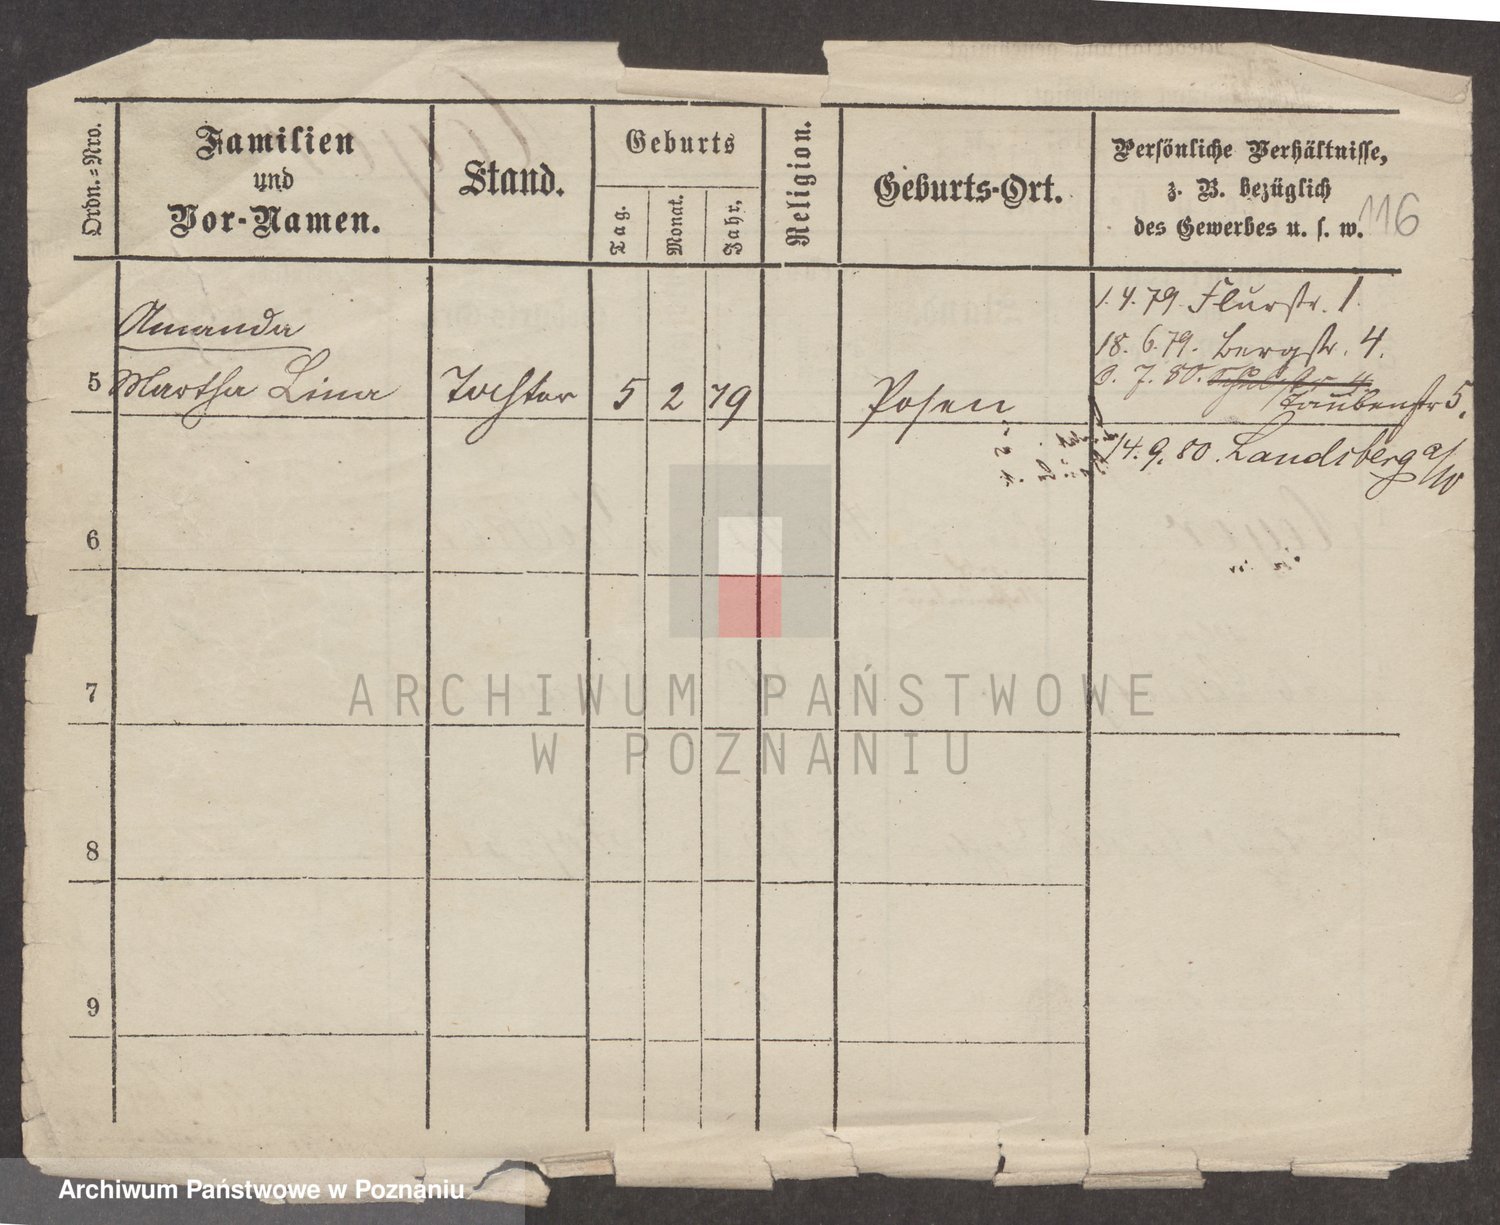 Ordn.=Nro.
Familien
und
Vor-Namen.
Stand.
Geburts
Tag.
Monat.
Jahr.
Religion.
Geburts-Ort.
Persönliche Verhältnisse,
z. B. bezüglich
des Gewerbes u. s. w.
116
1. 4. 79. Flurstr. 1.
Amanda
18. 6. 79. Bergstr. 4.
5 Martha Lina Tochter 5 2 79 Posen
7. 80.
Taubenstr 5.
14. 9. 80. Landsberg a/W
6
7
8
9
ARCHIWUM PAŃSTWOWE
W POZNANIU
Archiwum Państwowe w Poznaniu